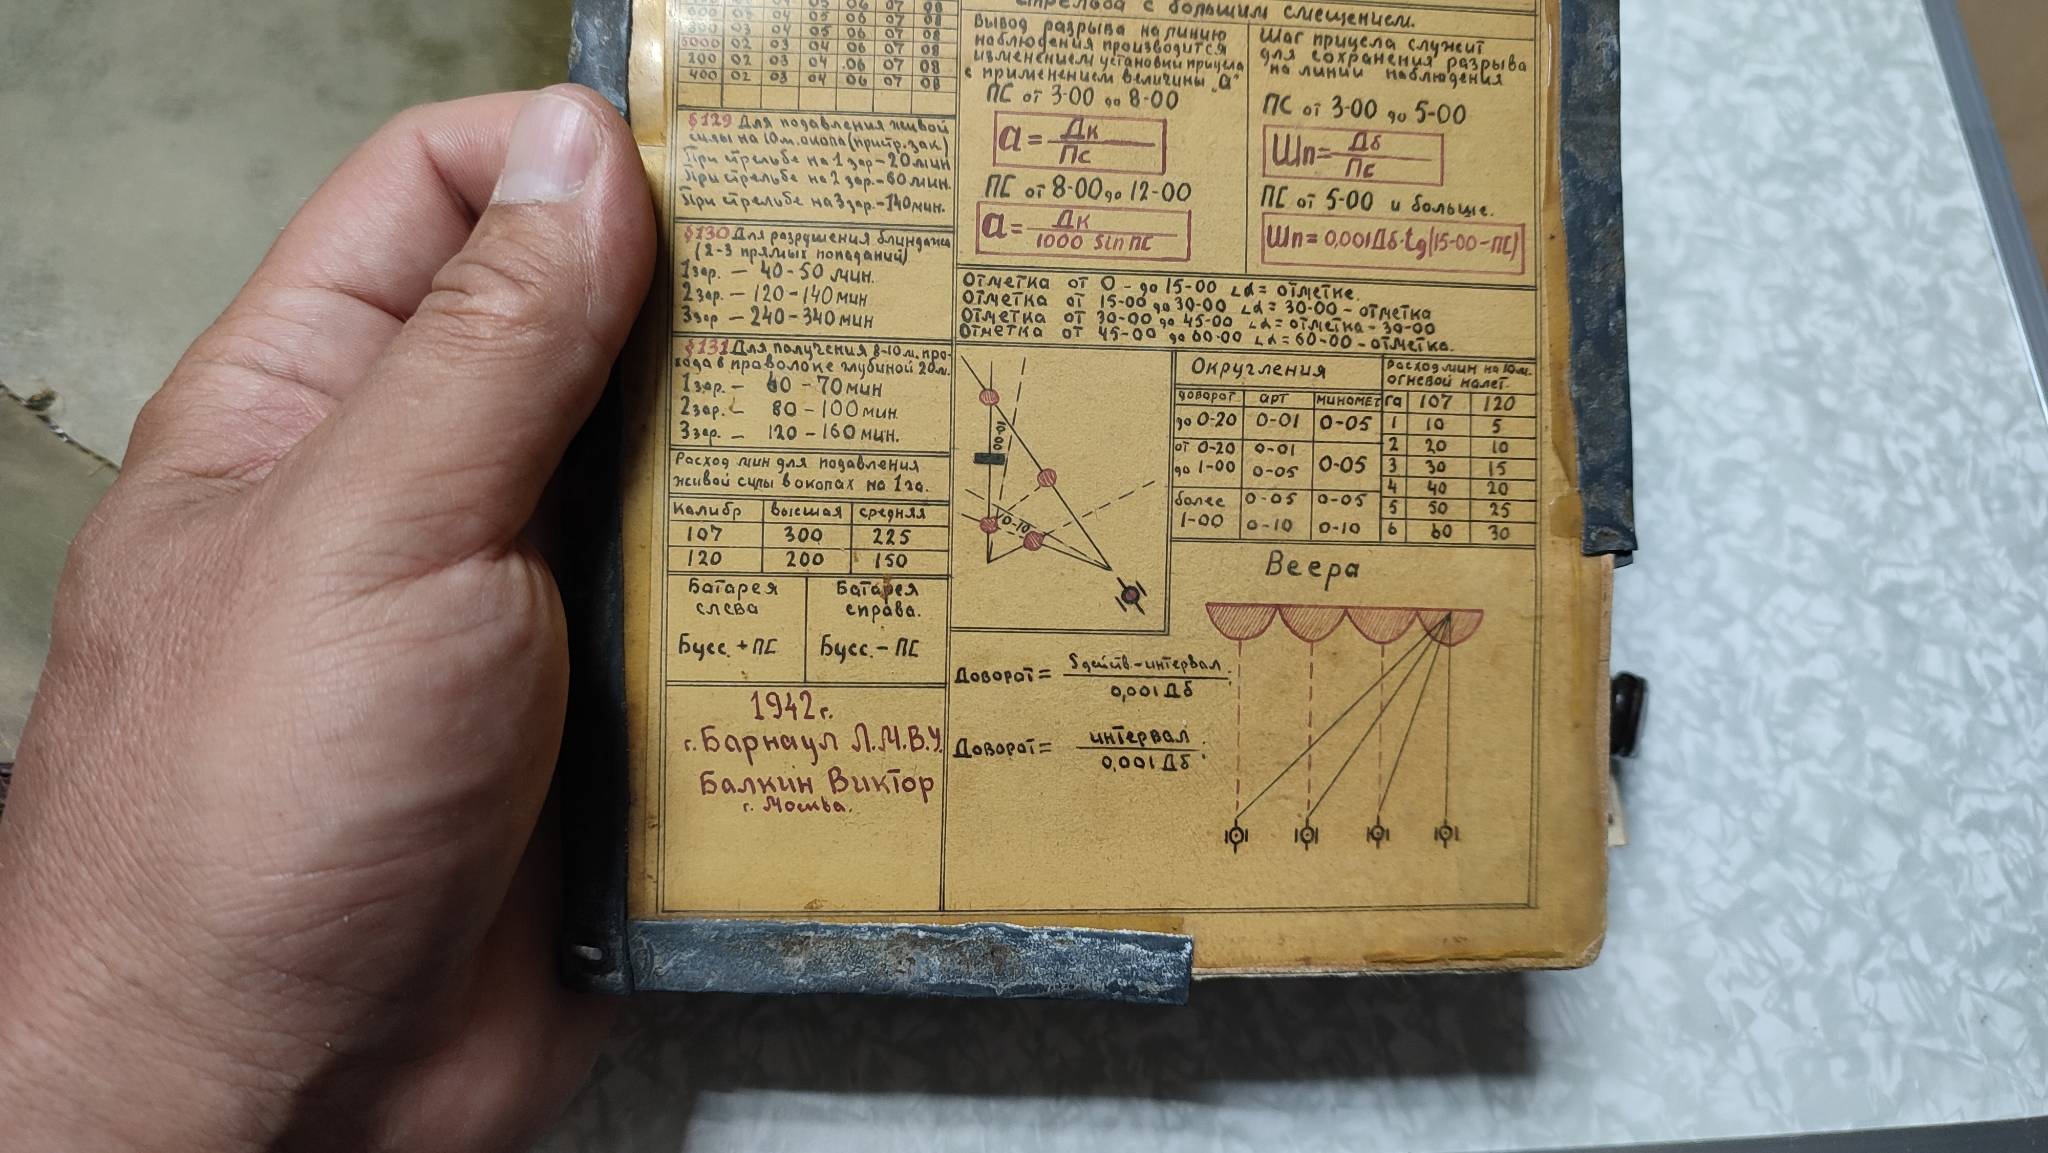 300 03 04 05 06 07 08
5000 02 03 04 06 07 08
200 02 03 04 06 07 08
400 02 03 04 06 07 08
§129 Для подавления живой
силы на 10м. окопа (пристр. зак)
При стрельбе на 1 зар - 20 мин
При стрельбе на 2 зар. - 60 мин.
При стрельбе на 3 зар. - 140 мин.
§130 Для разрушения блиндажа
(2-3 прямых попаданий)
1 зар. — 40-50 мин.
2 зар. — 120-140 мин
3 зар — 240-340 мин
§131 Для получения 8-10м. про-
хода в проволоке глубиной 20м.
1 зар. — 60 - 70 мин
2 зар. — 80 - 100 мин.
3 зар. — 120 - 160 мин.
Расход мин для подавления
живой силы в окопах на 1 га.
Калибр высшая средняя
107 300 225
120 200 150
Батарея слева
Бусс. + ПС
Батарея справа.
Бусс. - ПС
1942 г.
г. Барнаул Л.М.В.У.
Балкин Виктор
г. Москва.
стрельба с большим смещением.
Вывод разрыва на линию
наблюдения производится
изменением установки прицела
с применением величины "а"
ПС от 3-00 до 8-00
а = Дк / Пс
ПС от 8-00 до 12-00
а = Дк / 1000 sin ПС
Шаг прицела служит
для сохранения разрыва
на линии наблюдения
ПС от 3-00 до 5-00
Шп = Дб / Пс
ПС от 5-00 и больше.
Шп = 0,001 Дб · tg (15-00 - ПС)
Отметка от 0 - до 15-00 ∠α = отметке.
Отметка от 15-00 до 30-00 ∠α = 30-00 - отметка
Отметка от 30-00 до 45-00 ∠α = отметка - 30-00
Отметка от 45-00 до 60-00 ∠α = 60-00 - отметка.
0-10
Округления
доворот арт миномет
до 0-20 0-01 0-05
от 0-20 до 1-00 0-01 0-05 0-05
более 1-00 0-05 0-10 0-05 0-10
Расход мин на 10м.
огневой налет.
га 107 120
1 10 5
2 20 10
3 30 15
4 40 20
5 50 25
6 60 30
Веера
Доворот = S действ. - интервал / 0,001 Дб
Доворот = интервал / 0,001 Дб